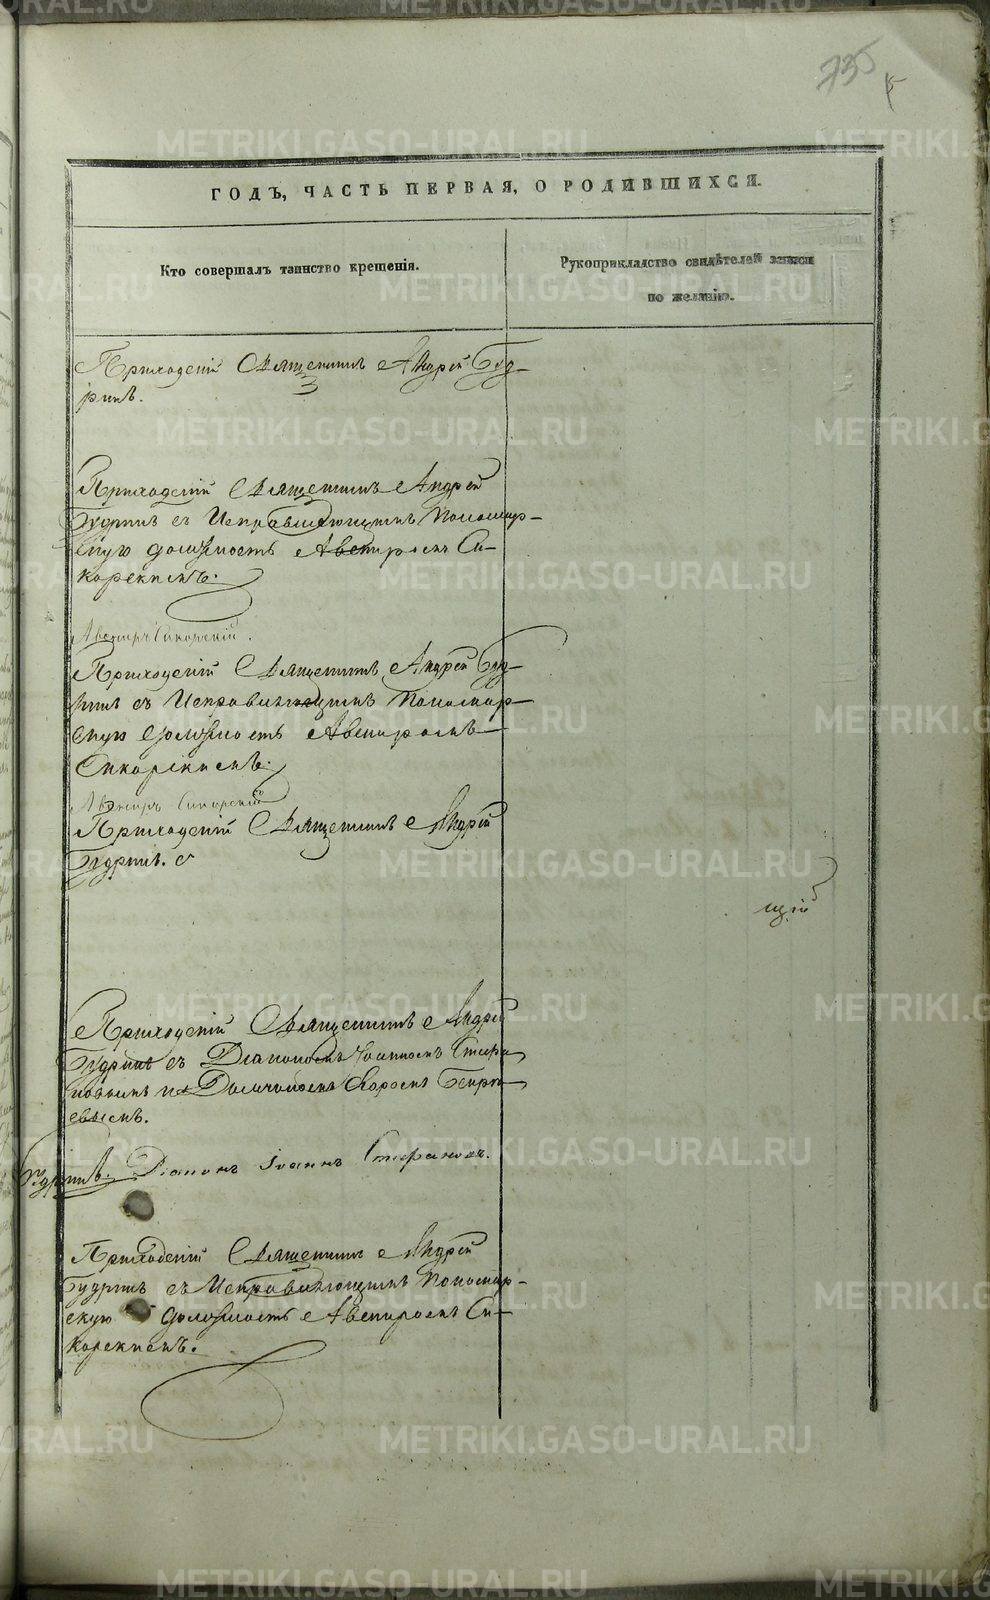 735
ГОДЪ, ЧАСТЬ ПЕРВАЯ, О РОДИВШИХСЯ.
Кто совершалъ таинство крещенія.
Рукоприкладство свидѣтелей записи
по желанію.
Приходскій Священникъ Андрей Буд-
ринъ.
Приходскій Священникъ Андрей
Будринъ съ Исправляющимъ Пономар-
скую должность Авениромъ Си-
корскимъ.
Авениръ Сикорскій.
Приходскій Священникъ Андрей Буд-
ринъ съ Исправляющимъ Пономар-
скую должность Авениромъ
Сикорскимъ.
Авениръ Сикорскій
Приходскій Священникъ Андрей
Будринъ. с
щій
Приходскій Священникъ Андрей
Будринъ съ Діакономъ Іоанномъ Стефа
новымъ и Дьячкомъ
евымъ.
Будринъ. Діаконъ Іоаннъ Стефановъ.
Приходскій Священникъ Андрей
Будринъ съ Исправляющимъ Пономар-
скую должность Авениромъ Си-
корскимъ.
METRIKI.GASO-URAL.RU